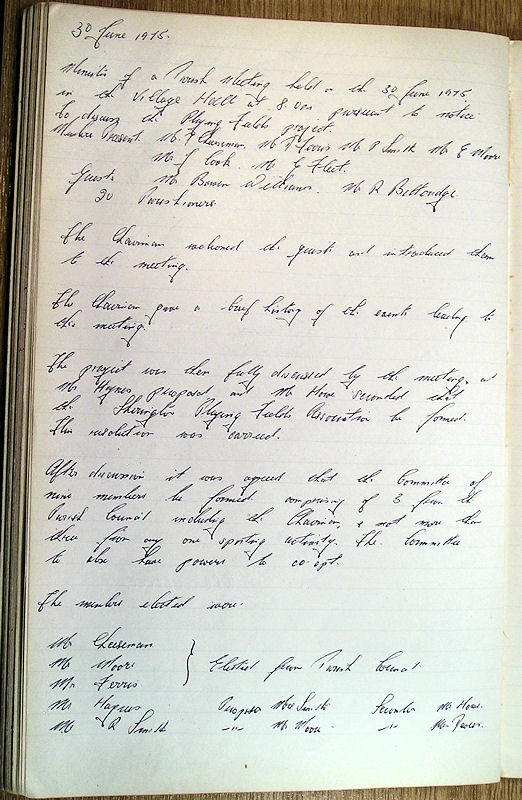 30 June 1975.
Minutes of a Parish Meeting held on the 30 June 1975
in the Village Hall at 8.0 pm pursuant to notice
to discuss the Playing Fields project.
Members Present. Mr Cheeseman Mr Ferris Mr R Smith Mr E Moore
Mr J Cook. Mr G Fleet.
Guests Mr Williams. Mr R Bettondge.
30 Parishioners
The Chairman welcomed the guests and introduced them
to the meeting.
The Chairman gave a brief history of the events leading to
this meeting.
The project was then fully discussed by the meeting, and
Mr Haynes proposed and Mr Howe seconded that
the Sherington Playing Fields Association be formed.
This resolution was carried.
After discussion it was agreed that the Committee of
nine members be formed comprising of 3 from the
Parish Council including the Chairman, & not more than
three from any one sporting activity. The Committee
to also have powers to co-opt.
The members elected were.
Mr Cheeseman
Mr Moore } Elected from Parish Council.
Mr Ferris
Mr Haynes Proposer Mr Smith Seconder Mr Howe.
Mr R Smith -"- Mr Moore -"- Mr Ferris.